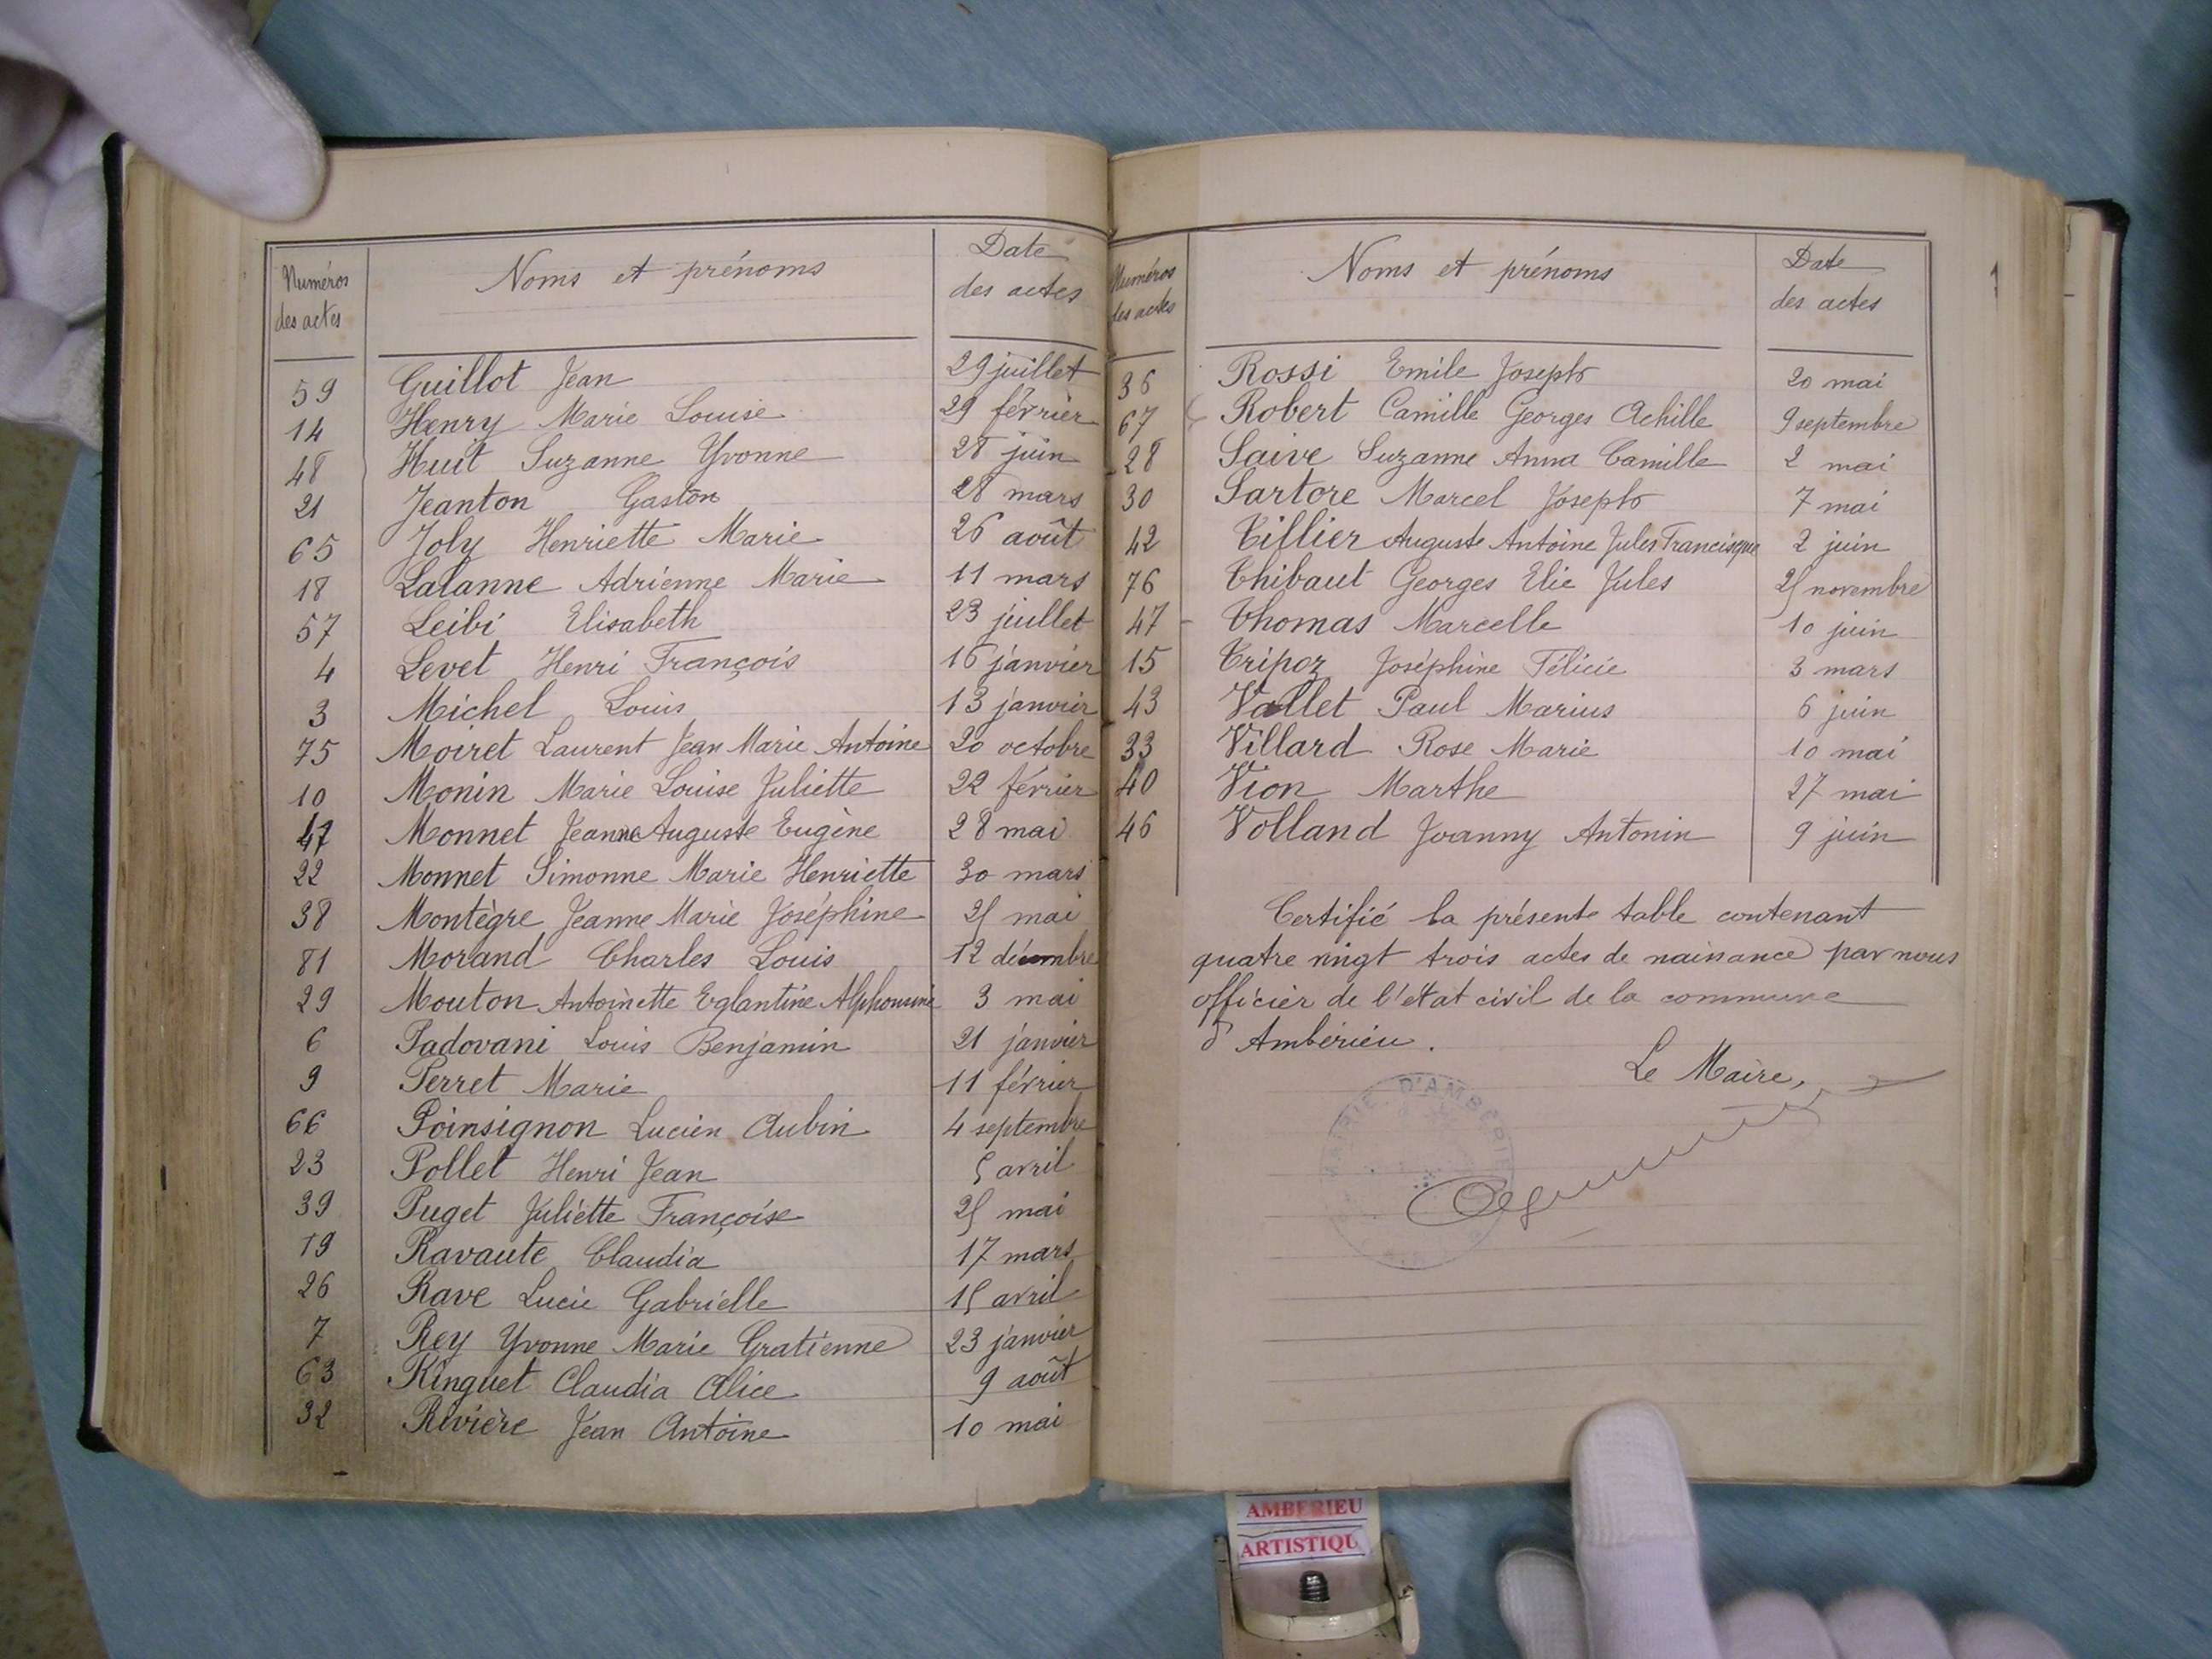 Numéros des actes
Noms et prénoms
Date des actes
59 Guillot Jean 29 juillet
14 Henry Marie Louise 29 février
48 Huit Suzanne Yvonne 28 juin
21 Jeanton Gaston 28 mars
65 Joly Henriette Marie 26 août
18 Lalanne Adrienne Marie 11 mars
57 Leibi Elisabeth 23 juillet
4 Levet Henri François 16 janvier
3 Michel Louis 13 janvier
75 Moiret Laurent Jean Marie Antoine 20 octobre
10 Monin Marie Louise Juliette 22 février
47 Monnet Jeanne Auguste Eugène 28 mai
22 Monnet Simonne Marie Henriette 30 mars
38 Montègre Jeanne Marie Joséphine 25 mai
81 Morand Charles Louis 12 décembre
29 Mouton Antoinette Eglantine Alphonsine 3 mai
6 Padovani Louis Benjamin 21 janvier
9 Perret Marie 11 février
66 Poinsignon Lucien Aubin 4 septembre
23 Pollet Henri Jean 5 avril
39 Puget Juliette Françoise 25 mai
19 Ravaute Claudia 17 mars
26 Rave Lucie Gabrielle 15 avril
7 Rey Yvonne Marie Gratienne 23 janvier
63 Ringuet Claudia Alice 9 août
32 Rivière Jean Antoine 10 mai
Numéros des actes
Noms et prénoms
Date des actes
36 Rossi Emile Joseph 20 mai
67 Robert Camille Georges Achille 9 septembre
28 Saive Suzanne Anna Camille 2 mai
30 Sartore Marcel Joseph 7 mai
42 Tillier Auguste Antoine Jules Francisque 2 juin
76 Thibaut Georges Elie Jules 25 novembre
47 Thomas Marcelle 10 juin
15 Tripoz Joséphine Félicie 3 mars
43 Vallet Paul Marius 6 juin
33 Villard Rose Marie 10 mai
40 Vion Marthe 27 mai
46 Volland Joanny Antonin 9 juin
Certifié la présente table contenant
quatre vingt trois actes de naissance par nous
officier de l'état civil de la commune
d'Ambérieu.
Le Maire,
AMBERIEU
ARTISTIQU